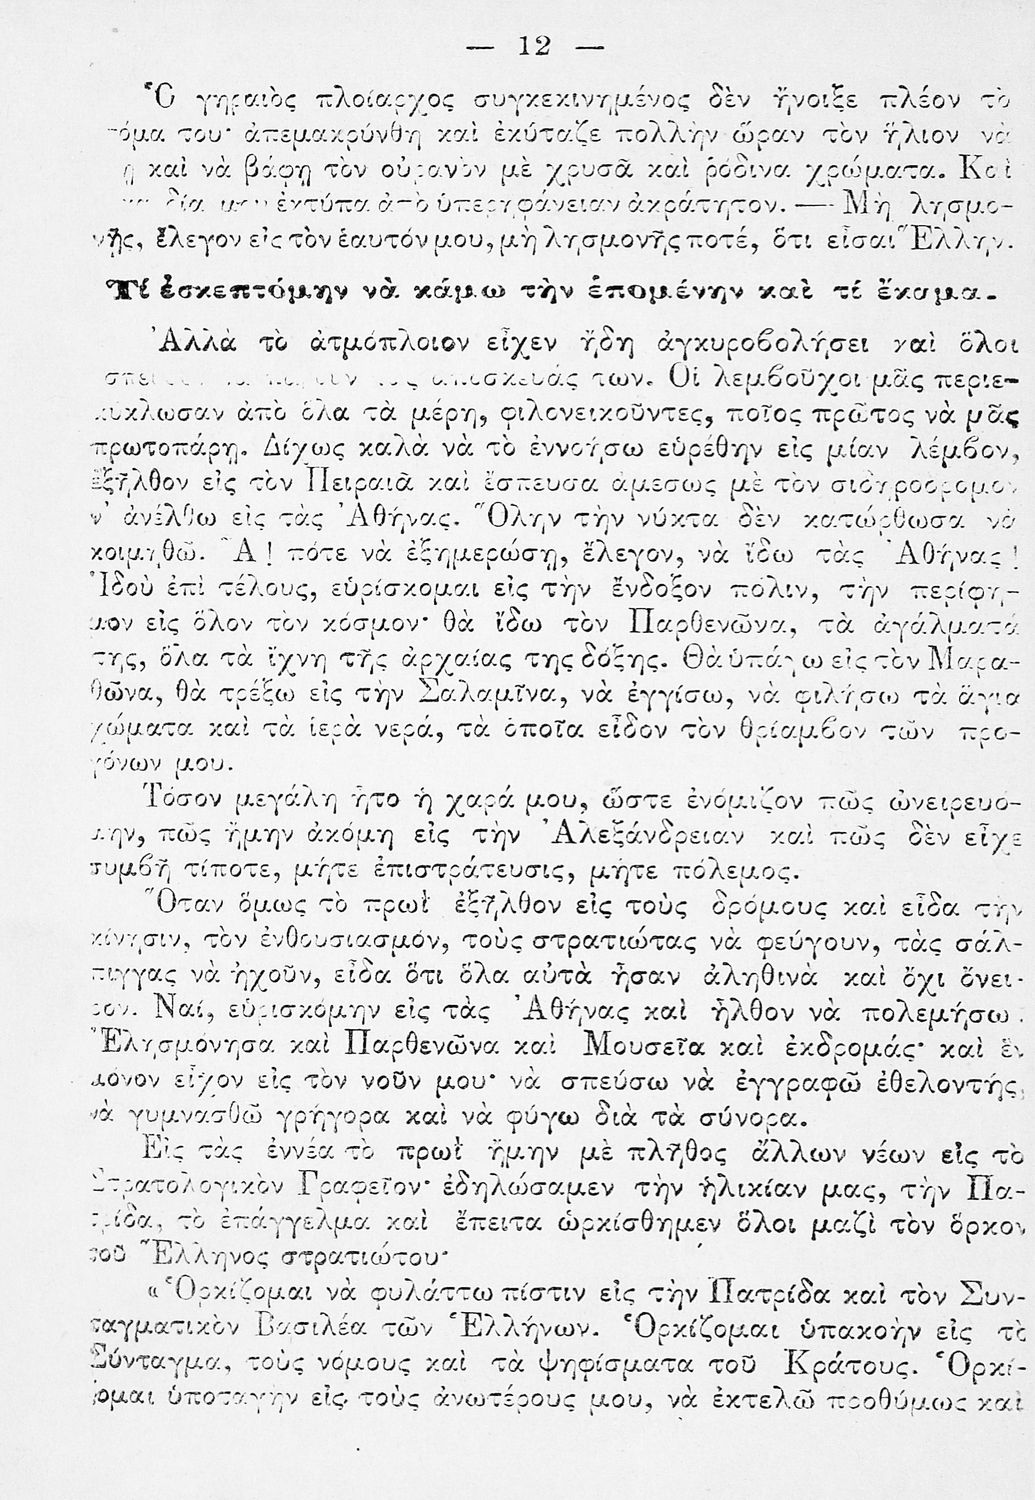 — 12 —
Ὁ γηραιὸς πλοίαρχος συγκεκινημένος δὲν ἤνοιξε πλέον τὸ
του· ἀπεμακρύνθη καὶ ἐκύταζε πολλὴν ὥραν τὸν ἥλιον νὰ
καὶ νὰ βάφῃ τὸν οὐρανὸν μὲ χρυσᾶ καὶ ῥόδινα χρώματα. Καὶ
ἐκτύπα ἀπὸ ὑπερηφάνειαν ἀκράτητον. — Μὴ λησμο-
νῇς, ἔλεγον εἰς τὸν ἑαυτόν μου, μὴ λησμονῇς ποτέ, ὅτι εἶσαι Ἕλλην.
Τί ἐσκεπτόμην νὰ κάμω τὴν ἑπομένην καὶ τί ἔκαμα.
Ἀλλὰ τὸ ἀτμόπλοιον εἶχεν ἤδη ἀγκυροβολήσει καὶ ὅλοι
των. Οἱ λεμβοῦχοι μᾶς περιε-
κύκλωσαν ἀπὸ ὅλα τὰ μέρη, φιλονεικοῦντες, ποῖος πρῶτος νὰ μᾶς
πρωτοπάρῃ. Δίχως καλὰ νὰ τὸ ἐννοήσω εὑρέθην εἰς μίαν λέμβον,
ἐξῆλθον εἰς τὸν Πειραιᾶ καὶ ἔσπευσα ἀμέσως μὲ τὸν σιδηρόδρομον
ν' ἀνέλθω εἰς τὰς Ἀθήνας. Ὅλην τὴν νύκτα δὲν κατώρθωσα νὰ
κοιμηθῶ. Ἆ! πότε νὰ ἐξημερώσῃ, ἔλεγον, νὰ ἴδω τὰς Ἀθήνας!
Ἰδοὺ ἐπὶ τέλους, εὑρίσκομαι εἰς τὴν ἔνδοξον πόλιν, τὴν περίφη-
μον εἰς ὅλον τὸν κόσμον· θὰ ἴδω τὸν Παρθενῶνα, τὰ ἀγάλματά
της, ὅλα τὰ ἴχνη τῆς ἀρχαίας της δόξης. Θὰ ὑπάγω εἰς τὸν Μαρα-
θῶνα, θὰ τρέξω εἰς τὴν Σαλαμῖνα, νὰ ἐγγίσω, νὰ φιλήσω τὰ ἅγια
χώματα καὶ τὰ ἱερὰ νερά, τὰ ὁποῖα εἶδον τὸν θρίαμβον τῶν προ-
γόνων μου.
Τόσον μεγάλη ἦτο ἡ χαρά μου, ὥστε ἐνόμιζον πῶς ὠνειρευό-
μην, πῶς ἤμην ἀκόμη εἰς τὴν Ἀλεξάνδρειαν καὶ πῶς δὲν εἶχε
συμβῆ τίποτε, μήτε ἐπιστράτευσις, μήτε πόλεμος.
Ὅταν ὅμως τὸ πρωῒ ἐξῆλθον εἰς τοὺς δρόμους καὶ εἶδα τὴν
κίνησιν, τὸν ἐνθουσιασμόν, τοὺς στρατιώτας νὰ φεύγουν, τὰς σάλ-
πιγγας νὰ ἠχοῦν, εἶδα ὅτι ὅλα αὐτὰ ἦσαν ἀληθινὰ καὶ ὄχι ὄνει-
ρον. Ναί, εὑρισκόμην εἰς τὰς Ἀθήνας καὶ ἦλθον νὰ πολεμήσω.
Ἐλησμόνησα καὶ Παρθενῶνα καὶ Μουσεῖα καὶ ἐκδρομάς· καὶ ἓν
μόνον εἶχον εἰς τὸν νοῦν μου· νὰ σπεύσω νὰ ἐγγραφῶ ἐθελοντής,
νὰ γυμνασθῶ γρήγορα καὶ νὰ φύγω διὰ τὰ σύνορα.
Εἰς τὰς ἐννέα τὸ πρωῒ ἤμην μὲ πλῆθος ἄλλων νέων εἰς τὸ
Στρατολογικὸν Γραφεῖον· ἐδηλώσαμεν τὴν ἡλικίαν μας, τὴν Πα-
τρίδα, τὸ ἐπάγγελμα καὶ ἔπειτα ὡρκίσθημεν ὅλοι μαζὶ τὸν ὅρκον
τοῦ Ἕλληνος στρατιώτου·
«Ὁρκίζομαι νὰ φυλάττω πίστιν εἰς τὴν Πατρίδα καὶ τὸν Συν-
ταγματικὸν Βασιλέα τῶν Ἑλλήνων. Ὁρκίζομαι ὑπακοὴν εἰς τὸ
Σύνταγμα, τοὺς νόμους καὶ τὰ ψηφίσματα τοῦ Κράτους. Ὁρκί-
ζομαι ὑποταγὴν εἰς τοὺς ἀνωτέρους μου, νὰ ἐκτελῶ προθύμως καὶ